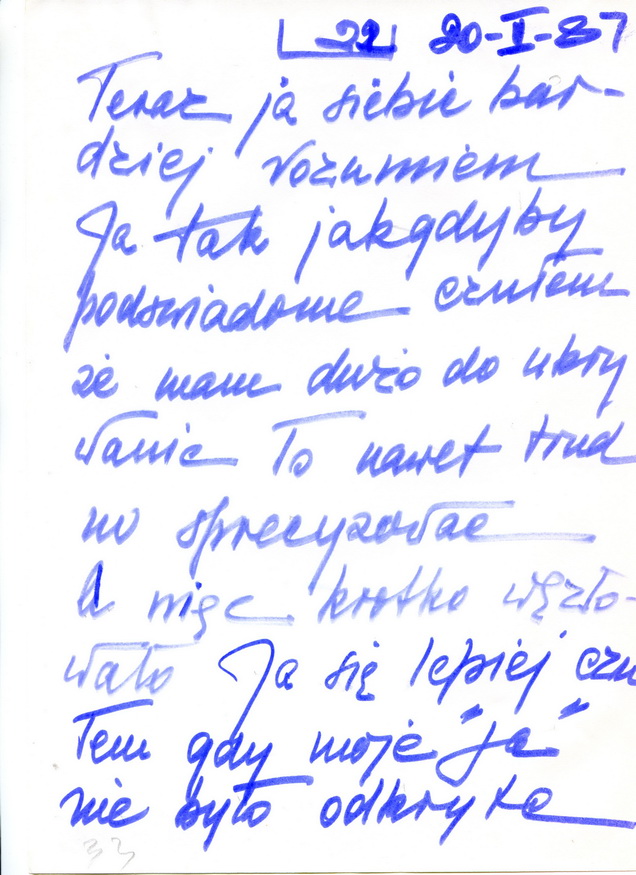 22 20-I-87
Teraz ja siebie bar-
dziej rozumiem
Ja tak jakgdyby
podświadome czułem
że mam dużo do ukry
wanie To nawet trud
no sprecyzować
A więc krotko węzło-
wato Ja się lepiej czu
łem gdy moje "ja"
nie było odkryte
33